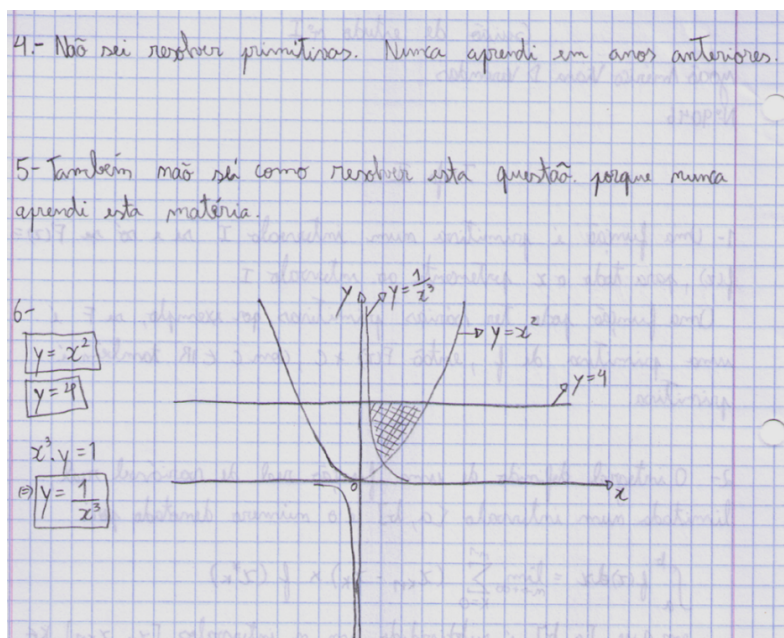 4.- Não sei resolver primitivas. Nunca aprendi em anos anteriores.
5- Também não sei como resolver esta questão. porque nunca
aprendi esta matéria.
6-
y = x²
y = 4
x³. y = 1
(=) y = 1/x³
y
y = 1/x³
y = x²
y = 4
0
x